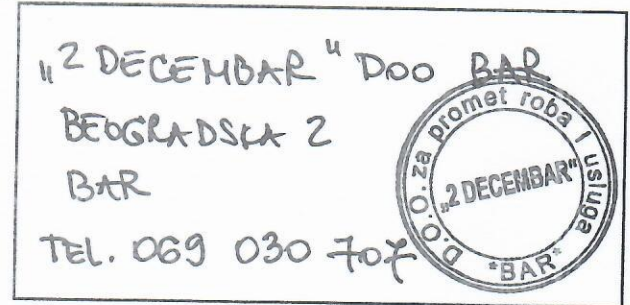 „2 DECEMBAR" DOO BAR
BEOGRADSKA 2
BAR
TEL. 069 030 707
D.O.O. za promet roba i usluga
„2 DECEMBAR"
*BAR*